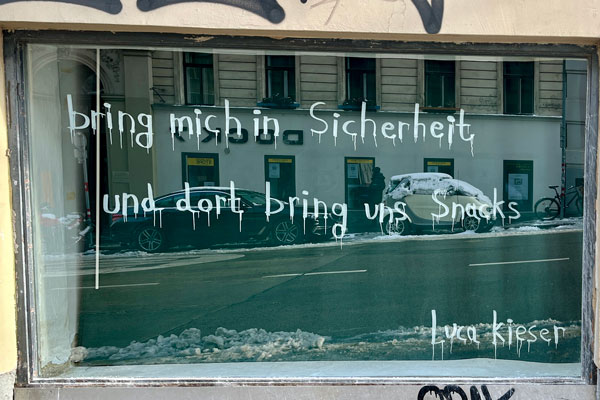 bring mich in Sicherheit,
und dort bring uns Snacks
Luca Kieser